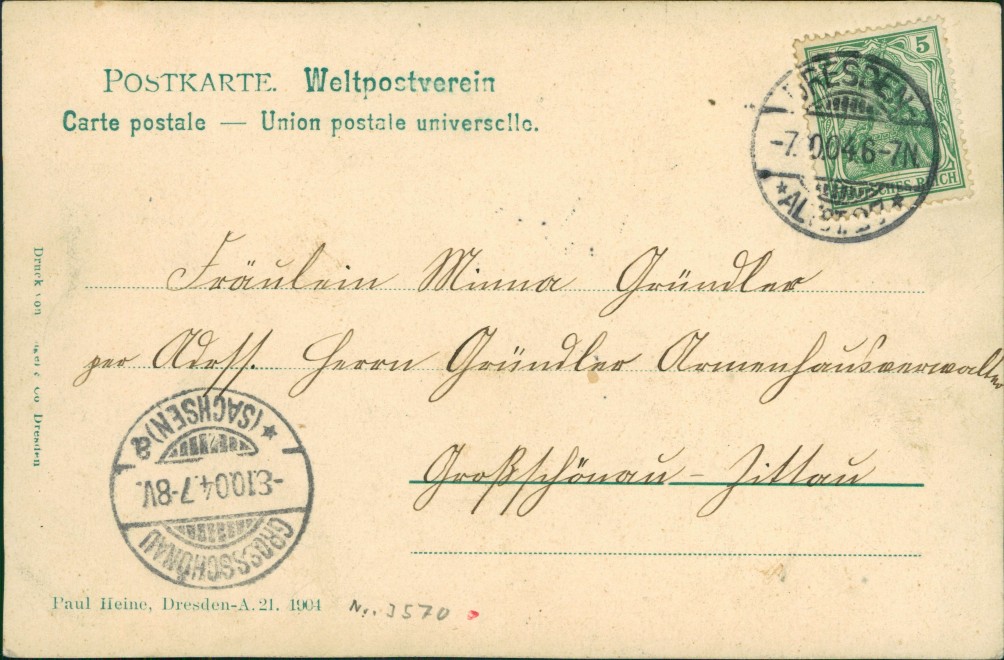 POSTKARTE. Weltpostverein
Carte postale — Union postale universelle.
5
DEUTSCHES REICH
DRESDEN
-7.10.04.6-7N.
*ALTST.
Fräulein Minna Gründler
per Adrss. Herrn Gründler Armenhausverwalter
Großschönau - Zittau
(SACHSEN) a
-8.10.04.7-8V.
GROSSSCHÖNAU
Druck von Co Dresden
Paul Heine, Dresden-A. 21. 1904
No. 3570